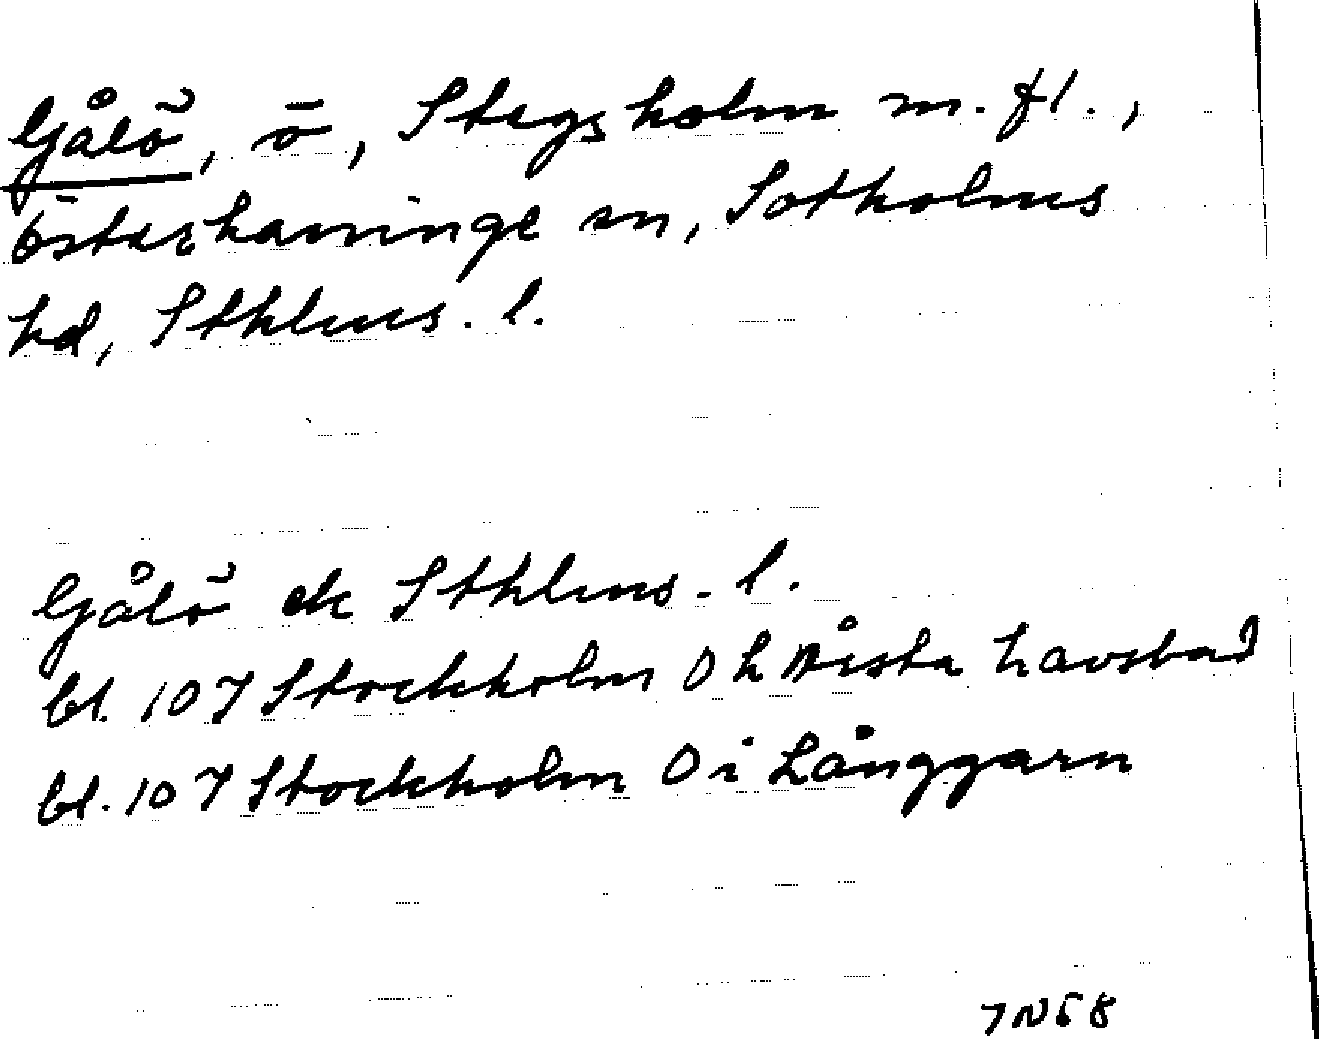 Gålö, ö, Stegsholm m. fl.,
Österhaninge sn, Sotholms
hd, Sthlms. l.
Gålö ek Sthlms. l.
bl. 107 Stockholm Ö h Årsta havsbad
bl. 107 Stockholm O i Långgarn
7N68